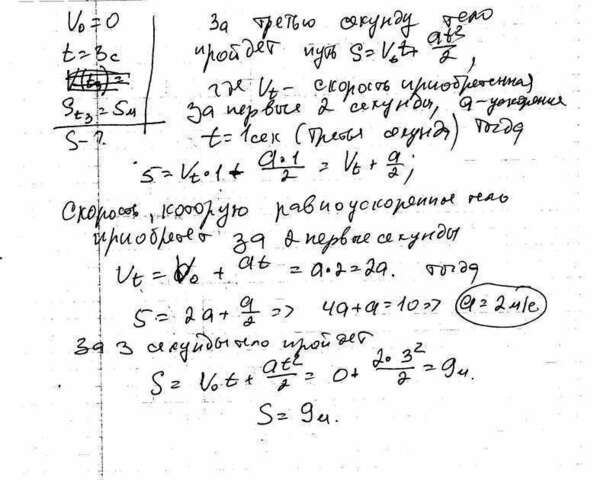 V₀ = 0
t = 3с
S_t₃ = 5м
S - ?
За третью секунду тело
пройдет путь S = V_t t + at²/2,
где V_t - скорость приобретенная
за первые 2 секунды, a - ускорение
t = 1сек (третья секунда) тогда
5 = V_t · 1 + a·1/2 = V_t + a/2;
Скорость, которую равноускоренное тело
приобретет за 2 первые секунды
V_t = V₀ + at = a·2 = 2a. тогда
5 = 2a + a/2 => 4a + a = 10 => a = 2 м/с
За 3 секунды тело пройдет
S = V₀t + at²/2 = 0 + 2·3²/2 = 9м.
S = 9м.